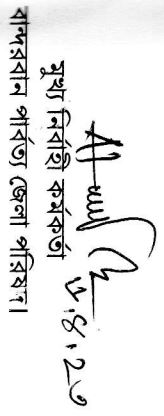 ১৩.৪.২৩
মুখ্য নির্বাহি কর্মকর্তা
বান্দরবান পার্বত্য জেলা পরিষদ।